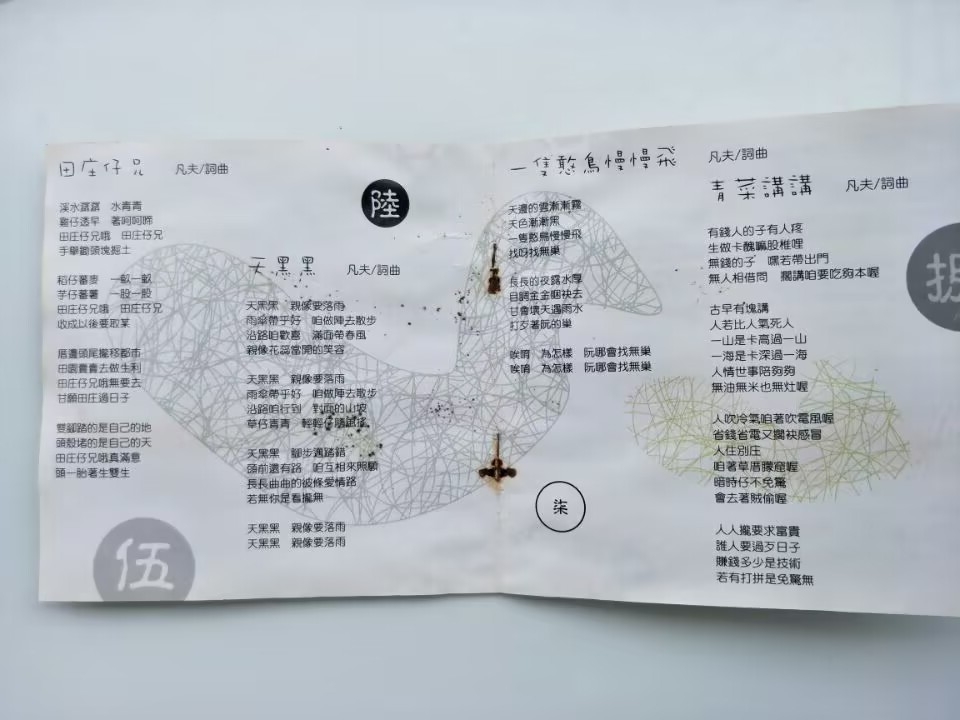 田庄仔兄 凡夫/詞曲
溪水 水青青
雞仔透早 著呵呵啼
田庄仔兄哦 田庄仔兄
手舉鋤頭塊掘土
稻仔蕃麥 一畝一畝
芋仔蕃薯 一股一股
田庄仔兄哦 田庄仔兄
收成以後要取某
厝邊頭尾攏移都市
田園賣賣去做生利
田庄仔兄哦無要去
甘願田庄過日子
雙腳踏的是自己的地
頭殼堵的是自己的天
田庄仔兄哦真滿意
頭一胎著生雙生
伍
陸
天黑黑 凡夫/詞曲
天黑黑 親像要落雨
雨傘帶乎好 咱做陣去散步
沿路咱歡喜 滿面帶春風
親像花蕊當開的笑容
天黑黑 親像要落雨
雨傘帶乎好 咱做陣去散步
沿路咱行到 對面的山坡
草仔青青 輕輕仔隨風搖
天黑黑 腳步邁踏錯
頭前還有路 咱互相來照顧
長長曲曲的彼條愛情路
若無你是看攏無
天黑黑 親像要落雨
天黑黑 親像要落雨
一隻憨鳥慢慢飛 凡夫/詞曲
天邊的雲漸漸霧
天色漸漸黑
一隻憨鳥慢慢飛
找呀找無巢
長長的夜露水厚
目睭金金睏袂去
甘會壞天遇雨水
打歹著阮的巢
唉唷 為怎樣 阮哪會找無巢
唉唷 為怎樣 阮哪會找無巢
柒
青菜講講 凡夫/詞曲
有錢人的子有人疼
生做卡醜嘛股椎哩
無錢的子 嘿若帶出門
無人相借問 擱講咱要吃夠本喔
古早有塊講
人若比人氣死人
一山是卡高過一山
一海是卡深過一海
人情世事陪夠夠
無油無米也無灶喔
人吹冷氣咱著吹電風喔
省錢省電又擱袂感冒
人住別庄
咱著草厝朦窟喔
暗時仔不免驚
會去著賊偷喔
人人攏要求富貴
誰人要過歹日子
賺錢多少是技術
若有打拼是免驚無
捌